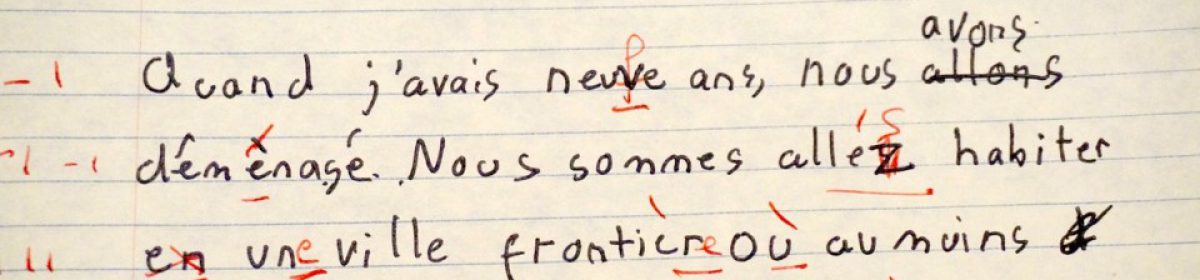 avons
-1 Quand j'avais neuve ans, nous allons
-1 -1 déménagé. Nous sommes allés habiter
11 en une ville frontière où au moins